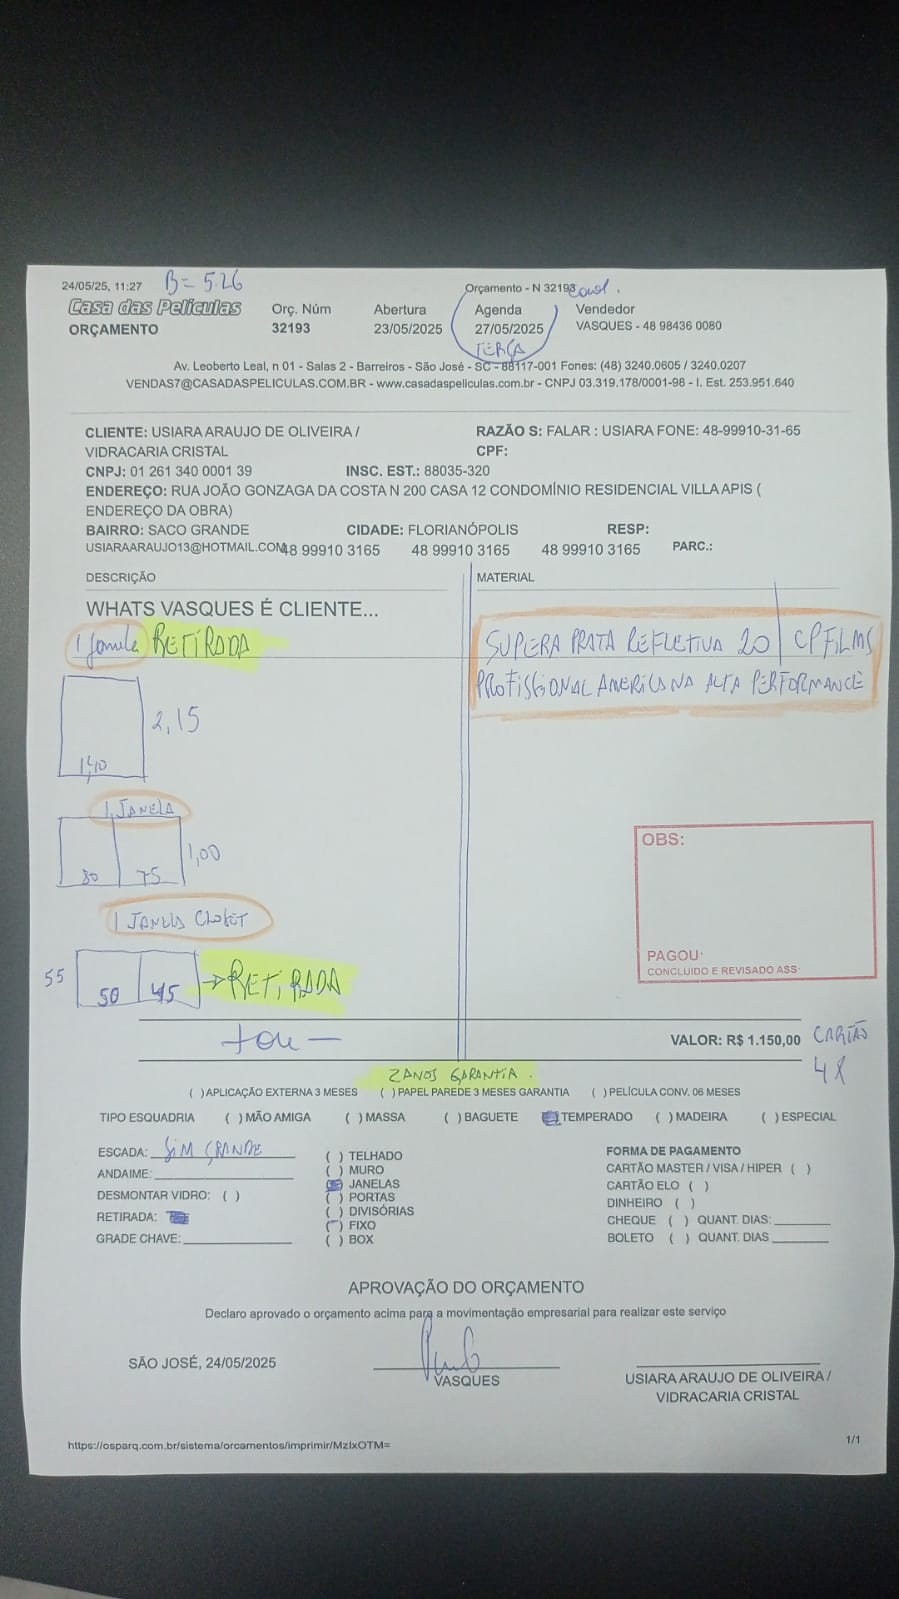 24/05/25, 11:27 B= 5.26 Orçamento - N 32193
Casa das Películas Orç. Núm Abertura Agenda Vendedor
ORÇAMENTO 32193 23/05/2025 27/05/2025 VASQUES - 48 98436 0080
TERÇA
Av. Leoberto Leal, n 01 - Salas 2 - Barreiros - São José - SC - 88117-001 Fones: (48) 3240.0605 / 3240.0207
VENDAS7@CASADASPELICULAS.COM.BR - www.casadaspeliculas.com.br - CNPJ 03.319.178/0001-98 - I. Est. 253.951.640
CLIENTE: USIARA ARAUJO DE OLIVEIRA / RAZÃO S: FALAR : USIARA FONE: 48-99910-31-65
VIDRACARIA CRISTAL CPF:
CNPJ: 01 261 340 0001 39 INSC. EST.: 88035-320
ENDEREÇO: RUA JOÃO GONZAGA DA COSTA N 200 CASA 12 CONDOMÍNIO RESIDENCIAL VILLA APIS (
ENDEREÇO DA OBRA)
BAIRRO: SACO GRANDE CIDADE: FLORIANÓPOLIS RESP:
USIARAARAUJO13@HOTMAIL.COM 48 99910 3165 48 99910 3165 48 99910 3165 PARC.:
DESCRIÇÃO MATERIAL
WHATS VASQUES É CLIENTE...
1 Janela RETIRADA SUPERA PRATA REFLETIVA 20 CPFILMS
PROFISSIONAL AMERICANA ALTA PERFORMANCE
2,15
1,40
1 JANELA
1,00
80 75
OBS:
1 JANELA CLOSET
PAGOU:
CONCLUIDO E REVISADO ASS:
55 50 45 → RETIRADA
VALOR: R$ 1.150,00 CARTÃO
4X
2 ANOS GARANTIA.
( ) APLICAÇÃO EXTERNA 3 MESES ( ) PAPEL PAREDE 3 MESES GARANTIA ( ) PELÍCULA CONV. 06 MESES
TIPO ESQUADRIA ( ) MÃO AMIGA ( ) MASSA ( ) BAGUETE ( ) TEMPERADO ( ) MADEIRA ( ) ESPECIAL
ESCADA: SIM GRANDE ( ) TELHADO FORMA DE PAGAMENTO
ANDAIME: ( ) MURO CARTÃO MASTER / VISA / HIPER ( )
( ) JANELAS CARTÃO ELO ( )
DESMONTAR VIDRO: ( ) ( ) PORTAS DINHEIRO ( )
RETIRADA: ( ) DIVISÓRIAS CHEQUE ( ) QUANT. DIAS:
( ) FIXO
GRADE CHAVE: ( ) BOX BOLETO ( ) QUANT. DIAS
APROVAÇÃO DO ORÇAMENTO
Declaro aprovado o orçamento acima para a movimentação empresarial para realizar este serviço
SÃO JOSÉ, 24/05/2025
VASQUES USIARA ARAUJO DE OLIVEIRA /
VIDRACARIA CRISTAL
https://osparq.com.br/sistema/orcamentos/imprimir/MzIxOTM= 1/1